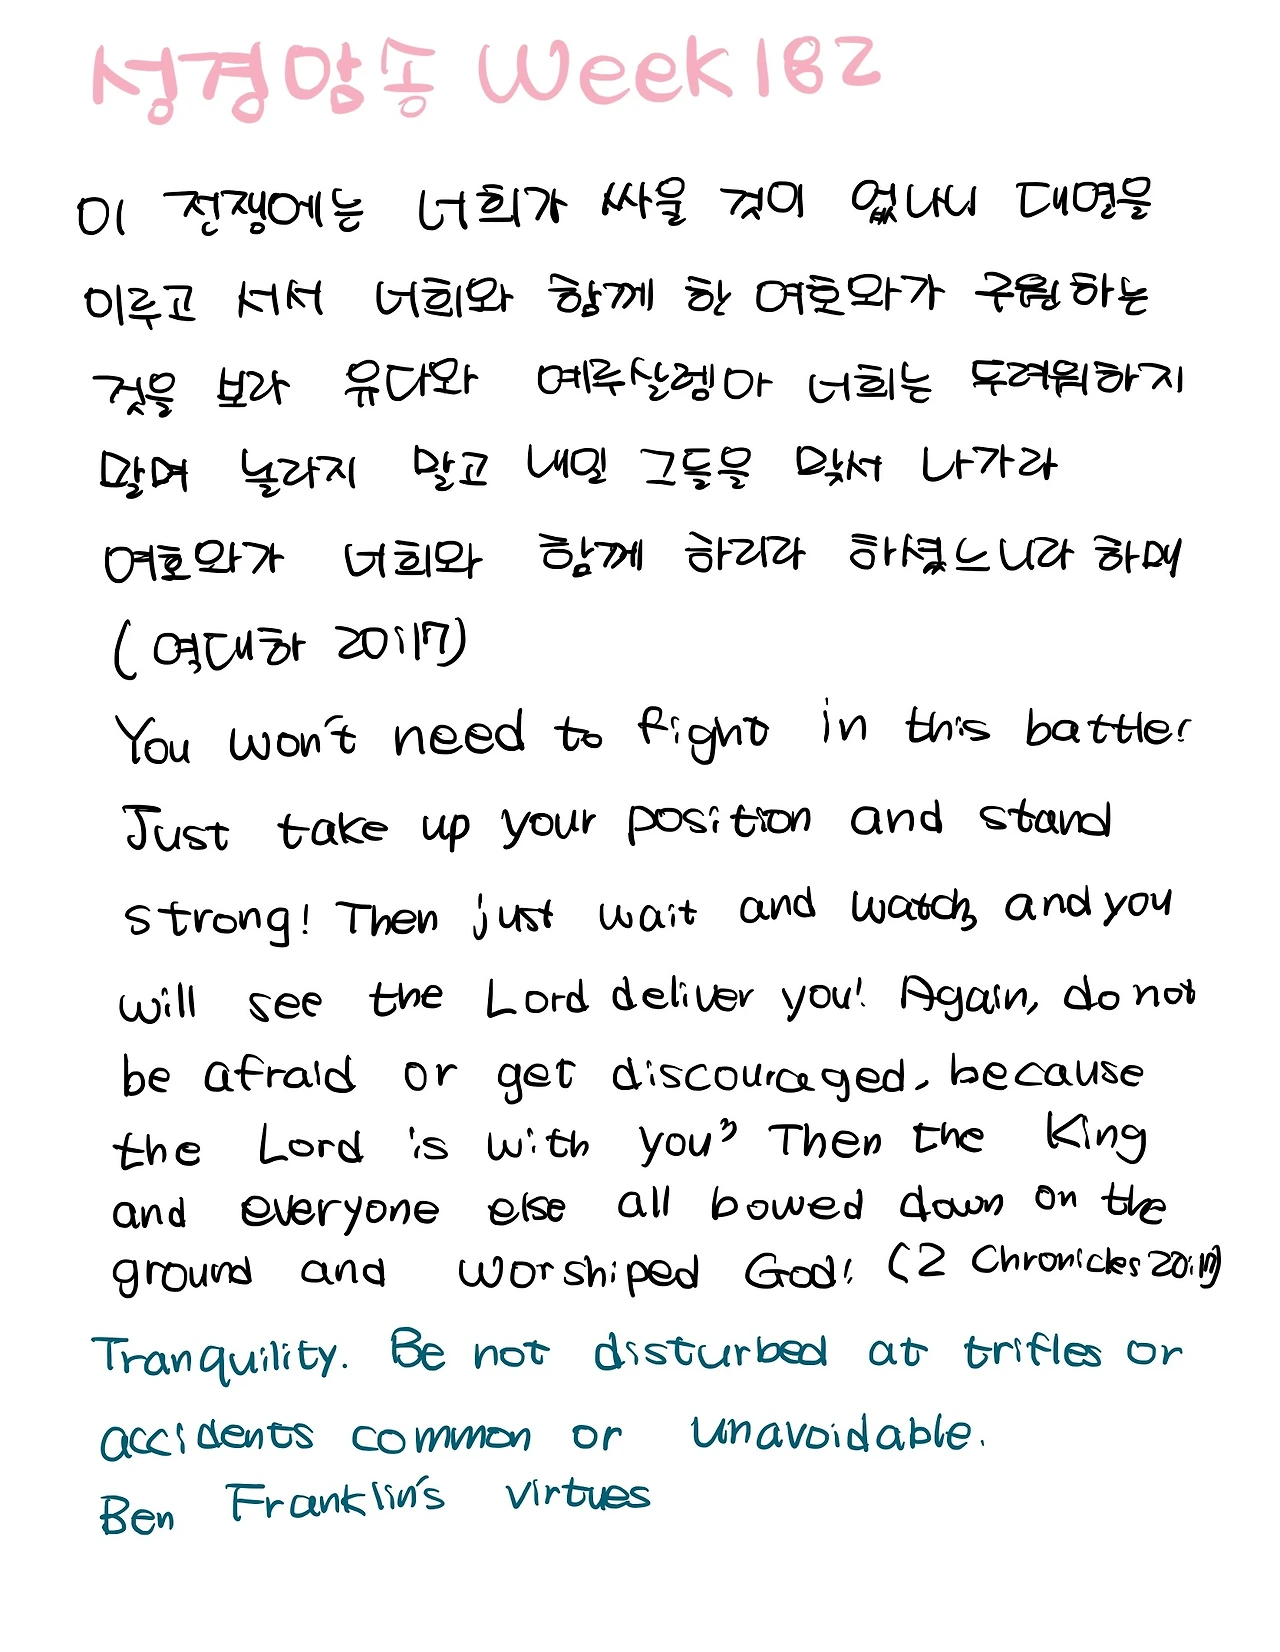 성경암송 Week 182
이 전쟁에는 너희가 싸울 것이 없나니 대열을
이루고 서서 너희와 함께 한 여호와가 구원하는
것을 보라 유다와 예루살렘아 너희는 두려워하지
말며 놀라지 말고 내일 그들을 맞서 나가라
여호와가 너희와 함께 하리라 하셨느니라 하매
(역대하 20:17)
You won't need to fight in this battle!
Just take up your position and stand
strong! Then just wait and watch, and you
will see the Lord deliver you! Again, do not
be afraid or get discouraged, because
the Lord is with you” Then the King
and everyone else all bowed down on the
ground and worshiped God! (2 Chronicles 20:17)
Tranquility. Be not disturbed at trifles or
accidents common or unavoidable.
Ben Franklin's virtues